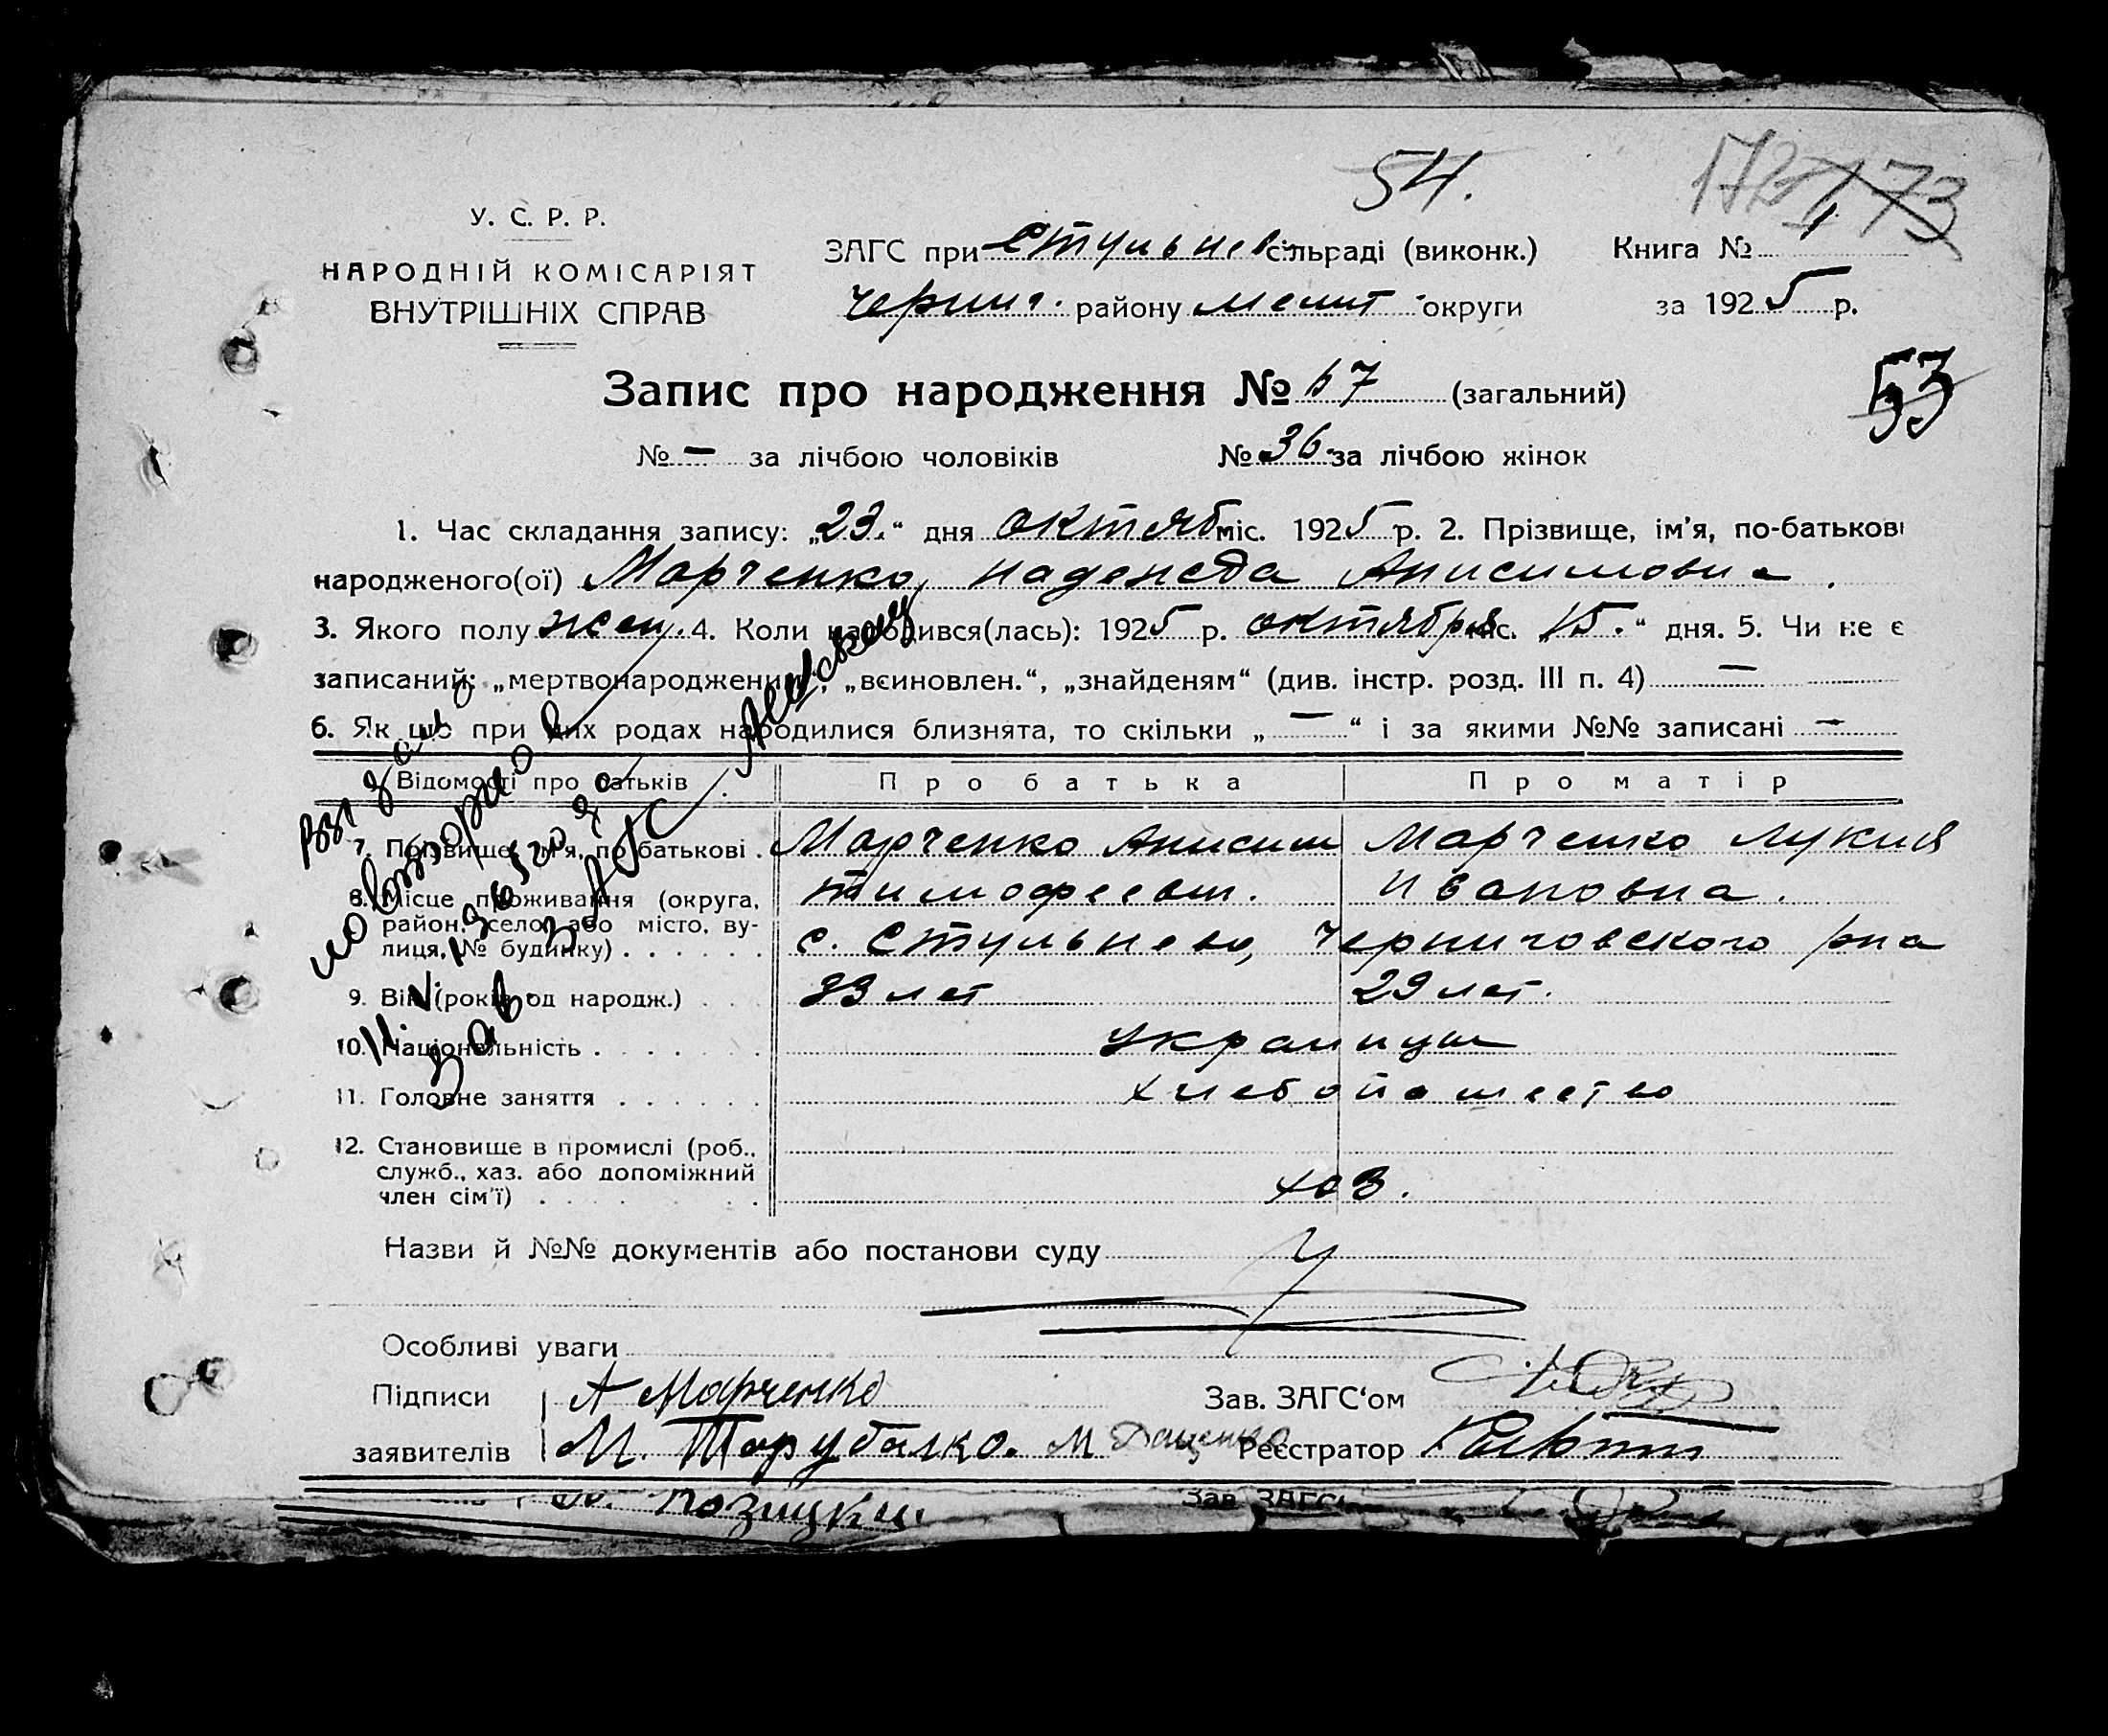 54.
173 173
У. С. Р. Р.
НАРОДНІЙ КОМІСАРІЯТ
ВНУТРІШНІХ СПРАВ
ЗАГС при Стульнев сільраді (виконк.) Книга № 1
Черниг. району Мелит округи за 1925 р.
53
Запис про народження № 67 (загальний)
№ — за лічбою чоловіків № 36 за лічбою жінок
1. Час складання запису: „23.“ дня октяб міс. 1925 р. 2. Прізвище, ім'я, по-батькові
народженого(ої) Марченко, Надежда Анисимовна.
3. Якого полу жен. 4. Коли народився(лась): 1925 р. октября міс. „15.“ дня. 5. Чи не є
записаний: „мертвонароджений“, „всиновлен.“, „знайденям“ (див. інстр. розд. III п. 4) —
6. Як що при цих родах народилися близнята, то скільки „—“ і за якими №№ записані —
Відомості про батьків Про батька Про матір
7. Прізвище, ім'я, по батькові. Марченко Анисим Марченко Лукия
Тимофеевич. Ивановна.
8. Місце проживання (округа, район, село або місто, вулиця, № будинку) с. Стульнево, Черниговского р-на
9. Вік (років од народж.) 33 лет 29 лет.
10. Національність украинцы
11. Головне заняття хлебопашество
12. Становище в промислі (роб.,
служб., хаз. або допоміжний
член сім'ї) хоз.
Выдано
повторно
Зав ЗАГС
Назви й №№ документів або постанови суду
Особливі уваги
Підписи А Марченко Зав. ЗАГС'ом
заявителів М. Тарубалко. М Даценко Реєстратор
Позицки
Зав. ЗАГС